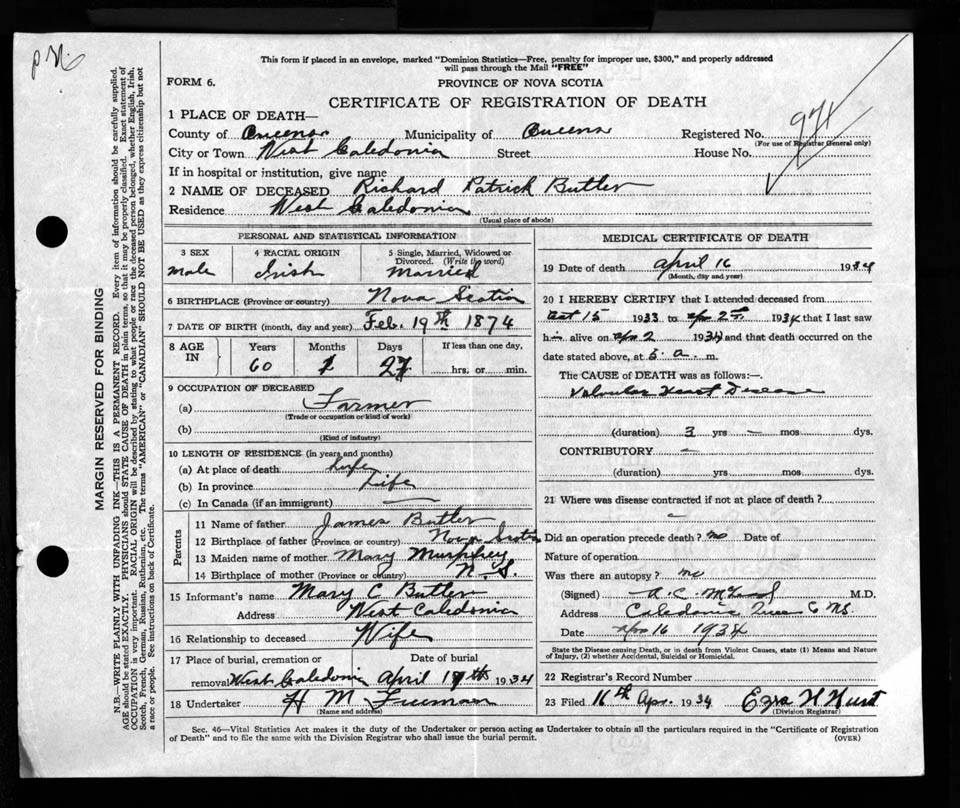 This form if placed in an envelope, marked "Dominion Statistics—Free, penalty for improper use, $300," and properly addressed
will pass through the Mail "FREE"
FORM 6.
PROVINCE OF NOVA SCOTIA
CERTIFICATE OF REGISTRATION OF DEATH
1 PLACE OF DEATH—
County of Queens Municipality of Queens Registered No. 974
(For use of Registrar General only)
City or Town West Caledonia Street House No.
If in hospital or institution, give name
2 NAME OF DECEASED Richard Patrick Butler
Residence West Caledonia
(Usual place of abode)
PERSONAL AND STATISTICAL INFORMATION
3 SEX 4 RACIAL ORIGIN 5 Single, Married, Widowed or
Divorced. (Write the word)
Male Irish Married
6 BIRTHPLACE (Province or country) Nova Scotia
7 DATE OF BIRTH (month, day and year) Feb. 19th 1874
8 AGE IN Years Months Days If less than one day,
60 1 27 hrs. or min.
9 OCCUPATION OF DECEASED
(a) Farmer
(Trade or occupation or kind of work)
(b)
(Kind of industry)
10 LENGTH OF RESIDENCE (in years and months)
(a) At place of death Life
(b) In province Life
(c) In Canada (if an immigrant) —
Parents
11 Name of father James Butler
12 Birthplace of father (Province or country) Nova Scotia
13 Maiden name of mother Mary Murphey
14 Birthplace of mother (Province or country) N. S.
15 Informant's name Mary C Butler
Address West Caledonia
16 Relationship to deceased Wife
17 Place of burial, cremation or Date of burial
removal West Caledonia April 17th 1934
18 Undertaker H M Freeman
(Name and address)
MEDICAL CERTIFICATE OF DEATH
19 Date of death April 16 1934
(Month, day and year)
20 I HEREBY CERTIFY that I attended deceased from
Oct 15 1933 to apr 2 1934 that I last saw
him alive on apr 2 1934 and that death occurred on the
date stated above, at 5. a. m.
The CAUSE of DEATH was as follows:—
Valvular Heart Disease
(duration) 3 yrs — mos dys.
CONTRIBUTORY —
(duration) yrs mos dys.
21 Where was disease contracted if not at place of death?
—
Did an operation precede death? no Date of
Nature of operation
Was there an autopsy? no
(Signed) M.D.
Address Caledonia Queens Co NS.
Date Apr 16 1934
State the Disease causing Death, or in death from Violent Causes, state (1) Means and Nature
of Injury, (2) whether Accidental, Suicidal or Homicidal.
22 Registrar's Record Number
23 Filed 16th Apr. 1934 Ezra N Hurst
(Division Registrar)
Sec. 46—Vital Statistics Act makes it the duty of the Undertaker or person acting as Undertaker to obtain all the particulars required in the "Certificate of Registration
of Death" and to file the same with the Division Registrar who shall issue the burial permit.
(OVER)
MARGIN RESERVED FOR BINDING
N.B.—WRITE PLAINLY WITH UNFADING INK—THIS IS A PERMANENT RECORD. Every item of information should be carefully supplied.
AGE should be stated EXACTLY. PHYSICIANS should STATE CAUSE OF DEATH in plain terms, so that it may be properly classified. Exact statement of
OCCUPATION is very important. RACIAL ORIGIN will be described by stating to what people or race the deceased person belonged, whether English, Irish,
Scotch, French, German, Russian, Ruthenian, etc. The terms "AMERICAN" or "CANADIAN" SHOULD NOT BE USED as they express citizenship but not
a race or people. See instructions on back of Certificate.